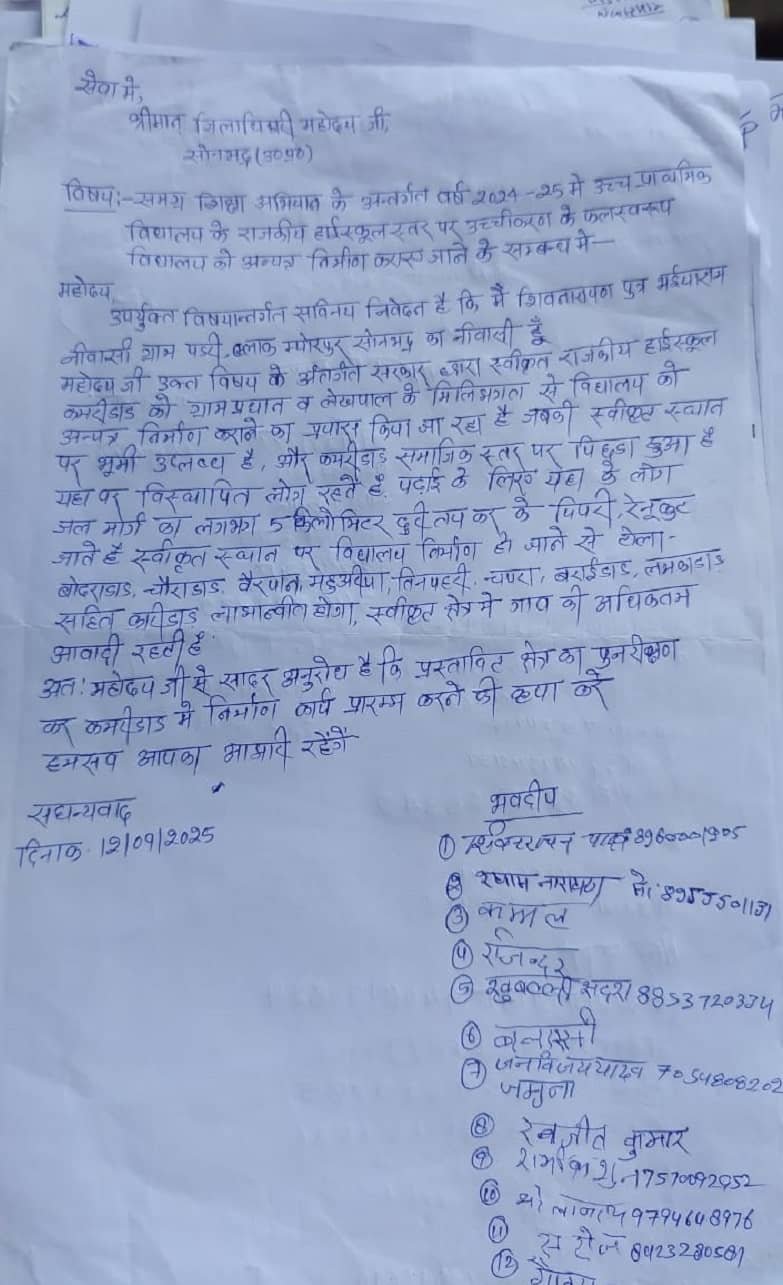 सेवा मे,
श्रीमान जिलाधिकारी महोदय जी,
सोनभद्र (उ०प्र०)
विषय:- समग्र शिक्षा अभियान के अन्तर्गत वर्ष 2024-25 मे उच्च प्राथमिक
विद्यालय के राजकीय हाईस्कूल स्तर पर उच्चीकरण के फलस्वरूप
विद्यालय को अन्यत्र निर्माण कराए जाने के सम्बन्ध मे-
महोदय,
उपर्युक्त विषयान्तर्गत सविनय निवेदन है कि मै शिवनारायण पुत्र भईयाराम
नीवासी ग्राम पडरी, ब्लाक म्योरपुर सोनभद्र का नीवासी हूँ
महोदय जी उक्त विषय के अंतर्गत सरकार द्वारा स्वीकृत राजकीय हाईस्कूल
कमरीडाड को ग्रामप्रधान व लेखपाल के मिलिभगत से विद्यालय को
अन्यत्र निर्माण कराने का प्रयास किया जा रहा है जबकी स्वीकृत स्थान
पर भूमी उपलब्ध है, और कमरीडाड समाजिक स्तर पर पिछडा हुआ है
यहा पर विस्थापित लोग रहते है. पढाई के लिए यहा के लोग
जल मार्ग का लगभग 5 किलोमिटर दुरी तय कर के पिपरी, रेनूकुट
जाते है स्वीकृत स्थान पर विद्यालय निर्माण हो जाने से टोला-
बोदराडाड, चौराडाड. वैरपान, महुअरीया, तिनपहरी, चपरा, बराईडाड, लमकाडाड
सहित करीडाड लाभान्वीत होगा, स्वीकृत क्षेत्र मे गाव की अधिकतम
आवादी रहती है
अत: महोदय जी से सादर अनुरोध है कि प्रस्तावित क्षेत्र का पुनरीक्षण
कर कमरीडाड मे निर्माण कार्य प्रारम्भ करने की कृपा करे
हमसब आपका आभारी रहेंगें
सधन्यवाद
दिनाक. 12/09/2025
भवदीय
① 8960001905
② श्याम नारायण मो: 8957501131
③ कमल
④ राजेन्दर
⑤ 8853720334
⑥
⑦ जनविजय यादव 7054808202
जमुना
⑧ रनजीत कुमार
⑨ 7570092952
⑩ 9794648976
⑪ सरोज 8423280581
⑫